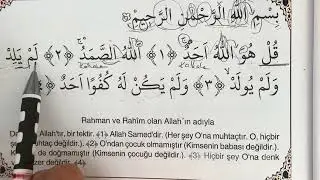 بِسْمِ اللّٰهِ الرَّحْمٰنِ الرَّحِيمِ
قُلْ هُوَ اللّٰهُ اَحَدٌ ﴿١﴾ اَللّٰهُ الصَّمَدُ ﴿٢﴾ لَمْ يَلِدْ
وَلَمْ يُولَدْ ﴿٣﴾ وَلَمْ يَكُنْ لَهُ كُفُوًا اَحَدٌ ﴿٤﴾
Rahman ve Rahîm olan Allah'ın adıyla
Allah'tır, bir tektir. ﴾1﴿ Allah Samed'dir. (Her şey O'na muhtaçtır. O, hiçbir
şeye muhtaç değildir.) ﴾2﴿ O'ndan çocuk olmamıştır (Kimsenin babası değildir).
doğmamıştır (Kimsenin çocuğu değildir). ﴾3﴿ Hiçbir şey O'na denk
değildir. ﴾4﴿